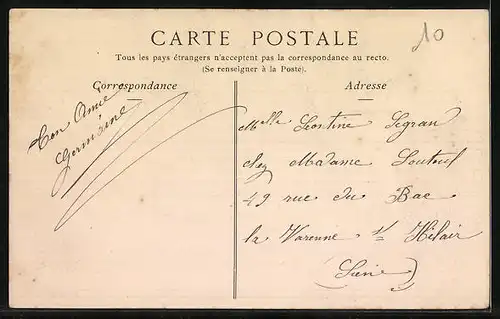 10
CARTE POSTALE
Tous les pays étrangers n'acceptent pas la correspondance au recto.
(Se renseigner à la Poste).
Correspondance
Adresse
Ton Amie
Germaine
Melle Léontine Legran
chez Madame
49 rue du Bac
la Varenne St Hilair
Seine